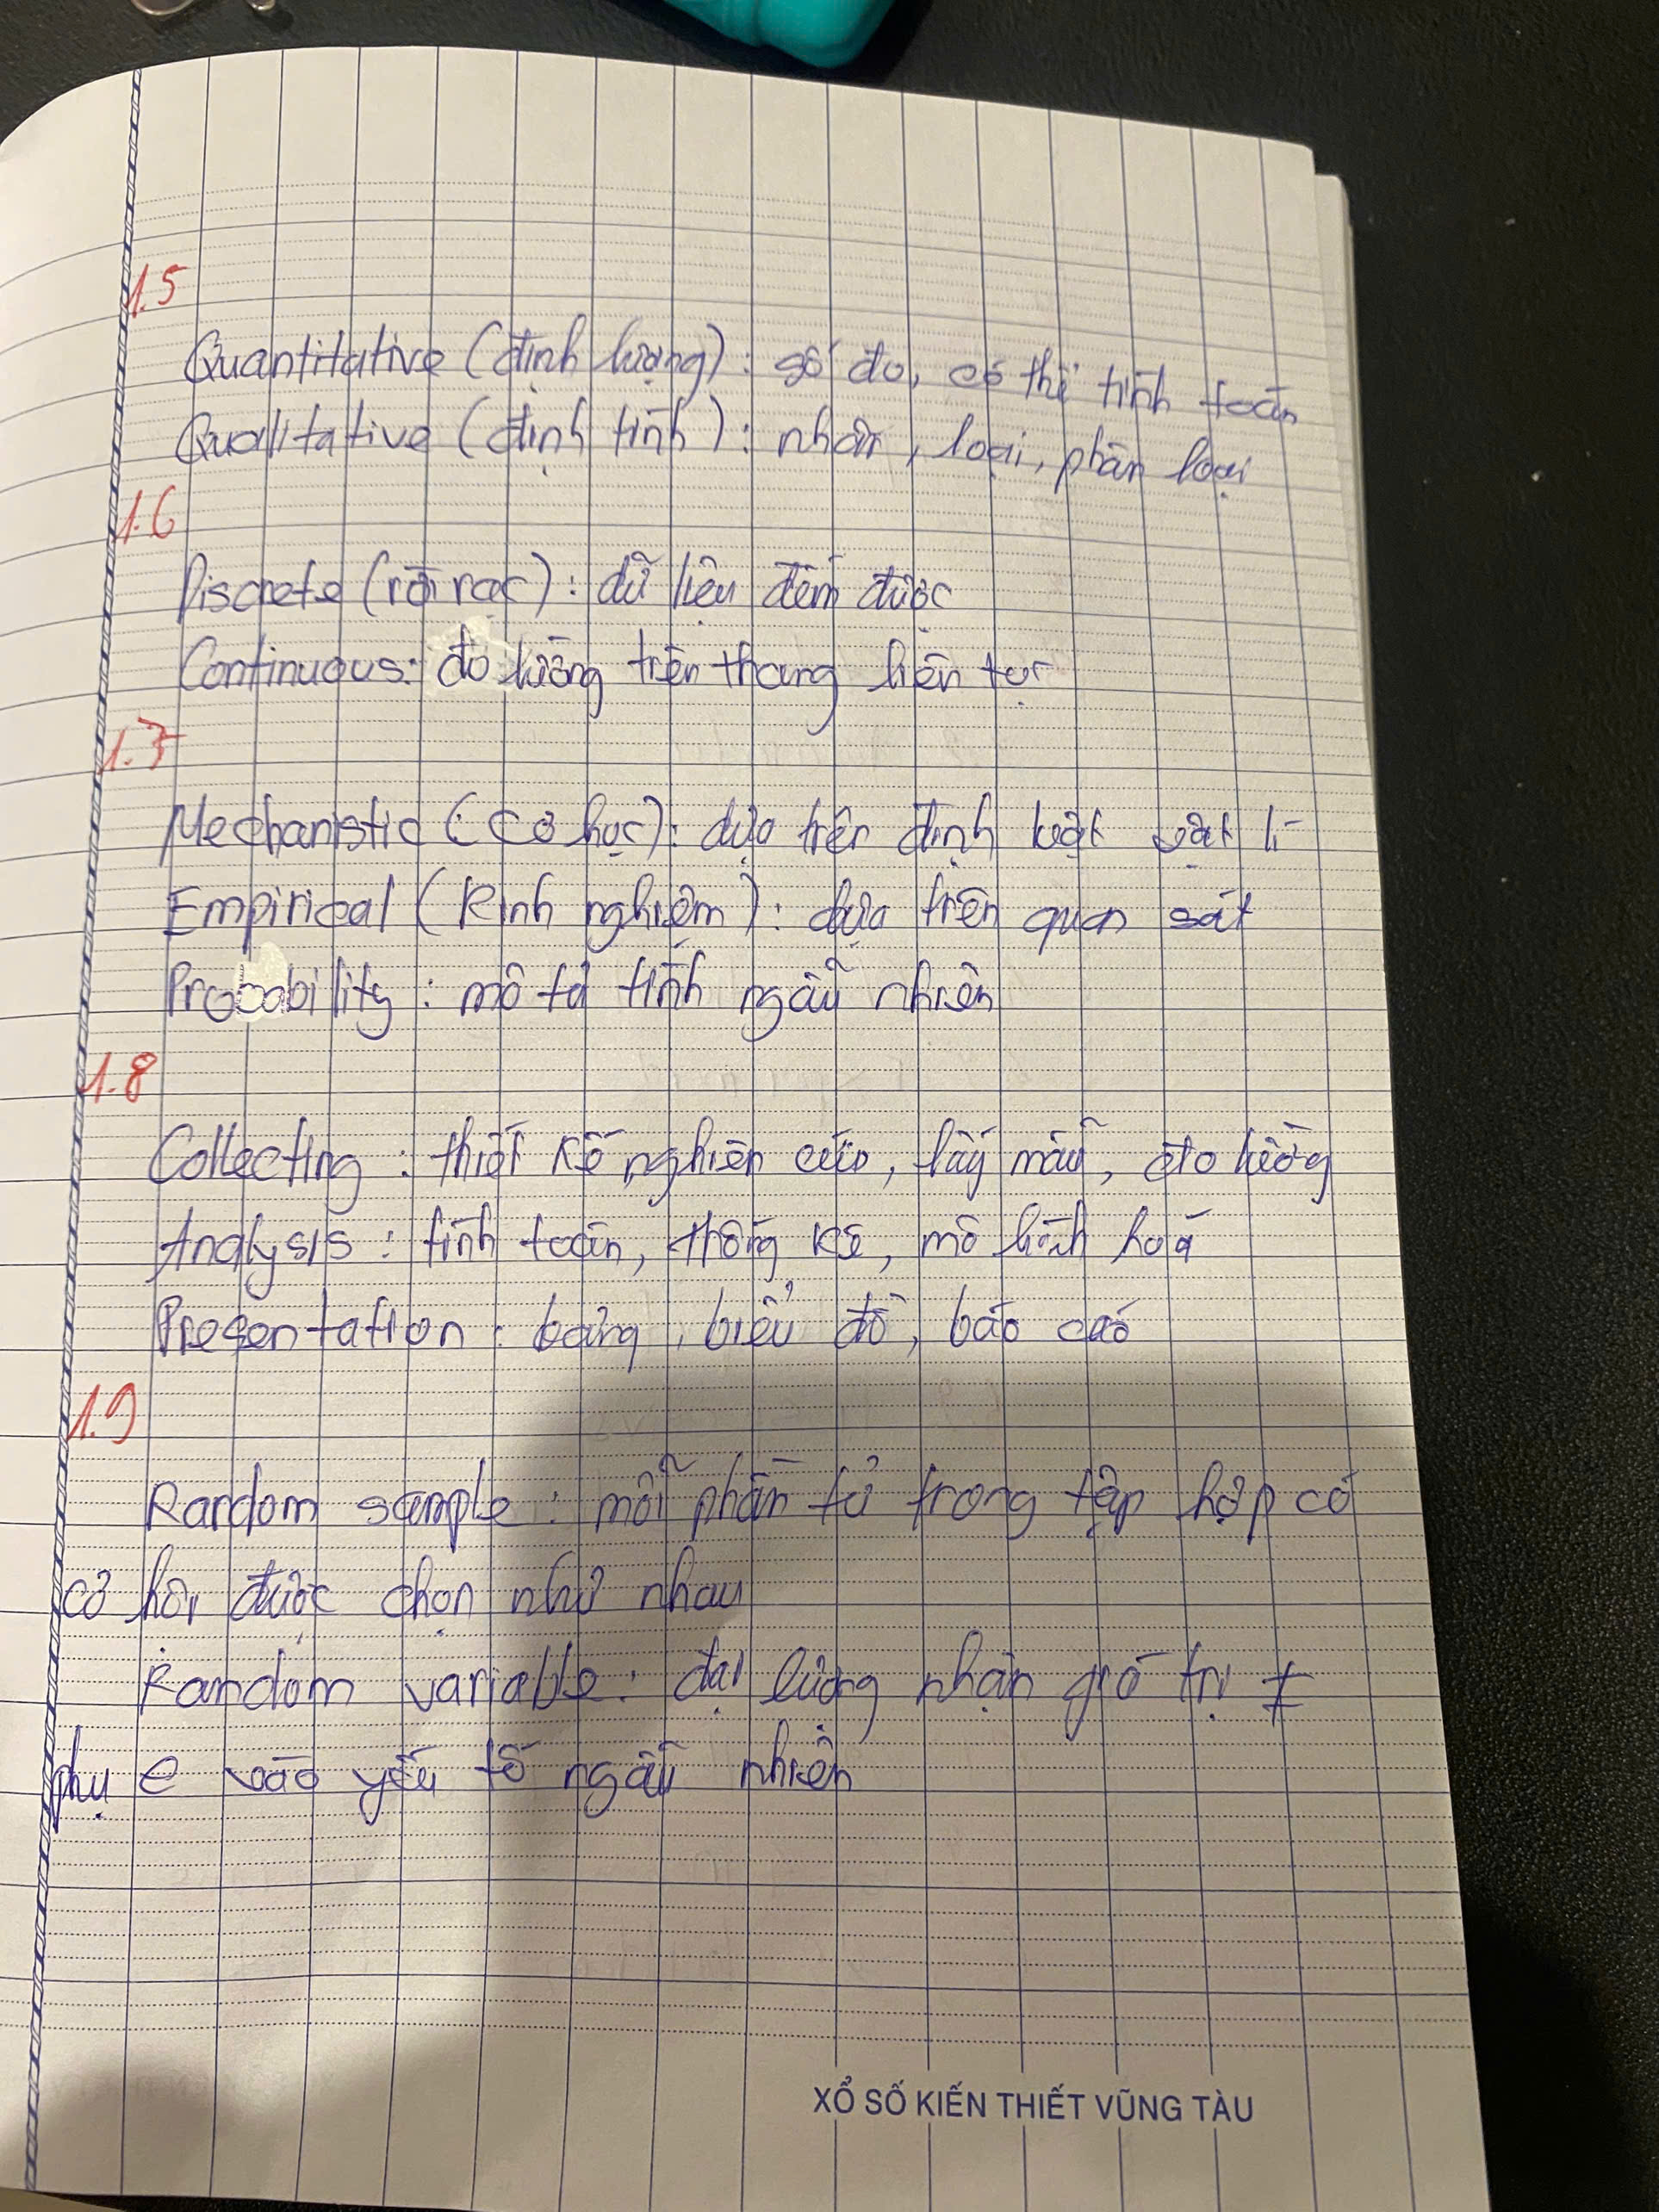 1.5
Quantitative (định lượng): số đo, có thể tính toán
Qualitative (định tính): nhãn, loại, phân loại
1.6
Discrete (rời rạc): dữ liệu đếm được
Continuous: đo lường trên thang liên tục
1.7
Mechanistic (cơ học): dựa trên định luật vật lí
Empirical (kinh nghiệm): dựa trên quan sát
Probability: mô tả tính ngẫu nhiên
1.8
Collecting: thiết kế nghiên cứu, lấy mẫu, đo lường
Analysis: tính toán, thống kê, mô hình hoá
Presentation: bảng, biểu đồ, báo cáo
1.9
Random sample: mỗi phần tử trong tập hợp có
cơ hội được chọn như nhau
Random variable: đại lượng nhận giá trị ≠
phụ e vào yếu tố ngẫu nhiên
XỔ SỐ KIẾN THIẾT VŨNG TÀU